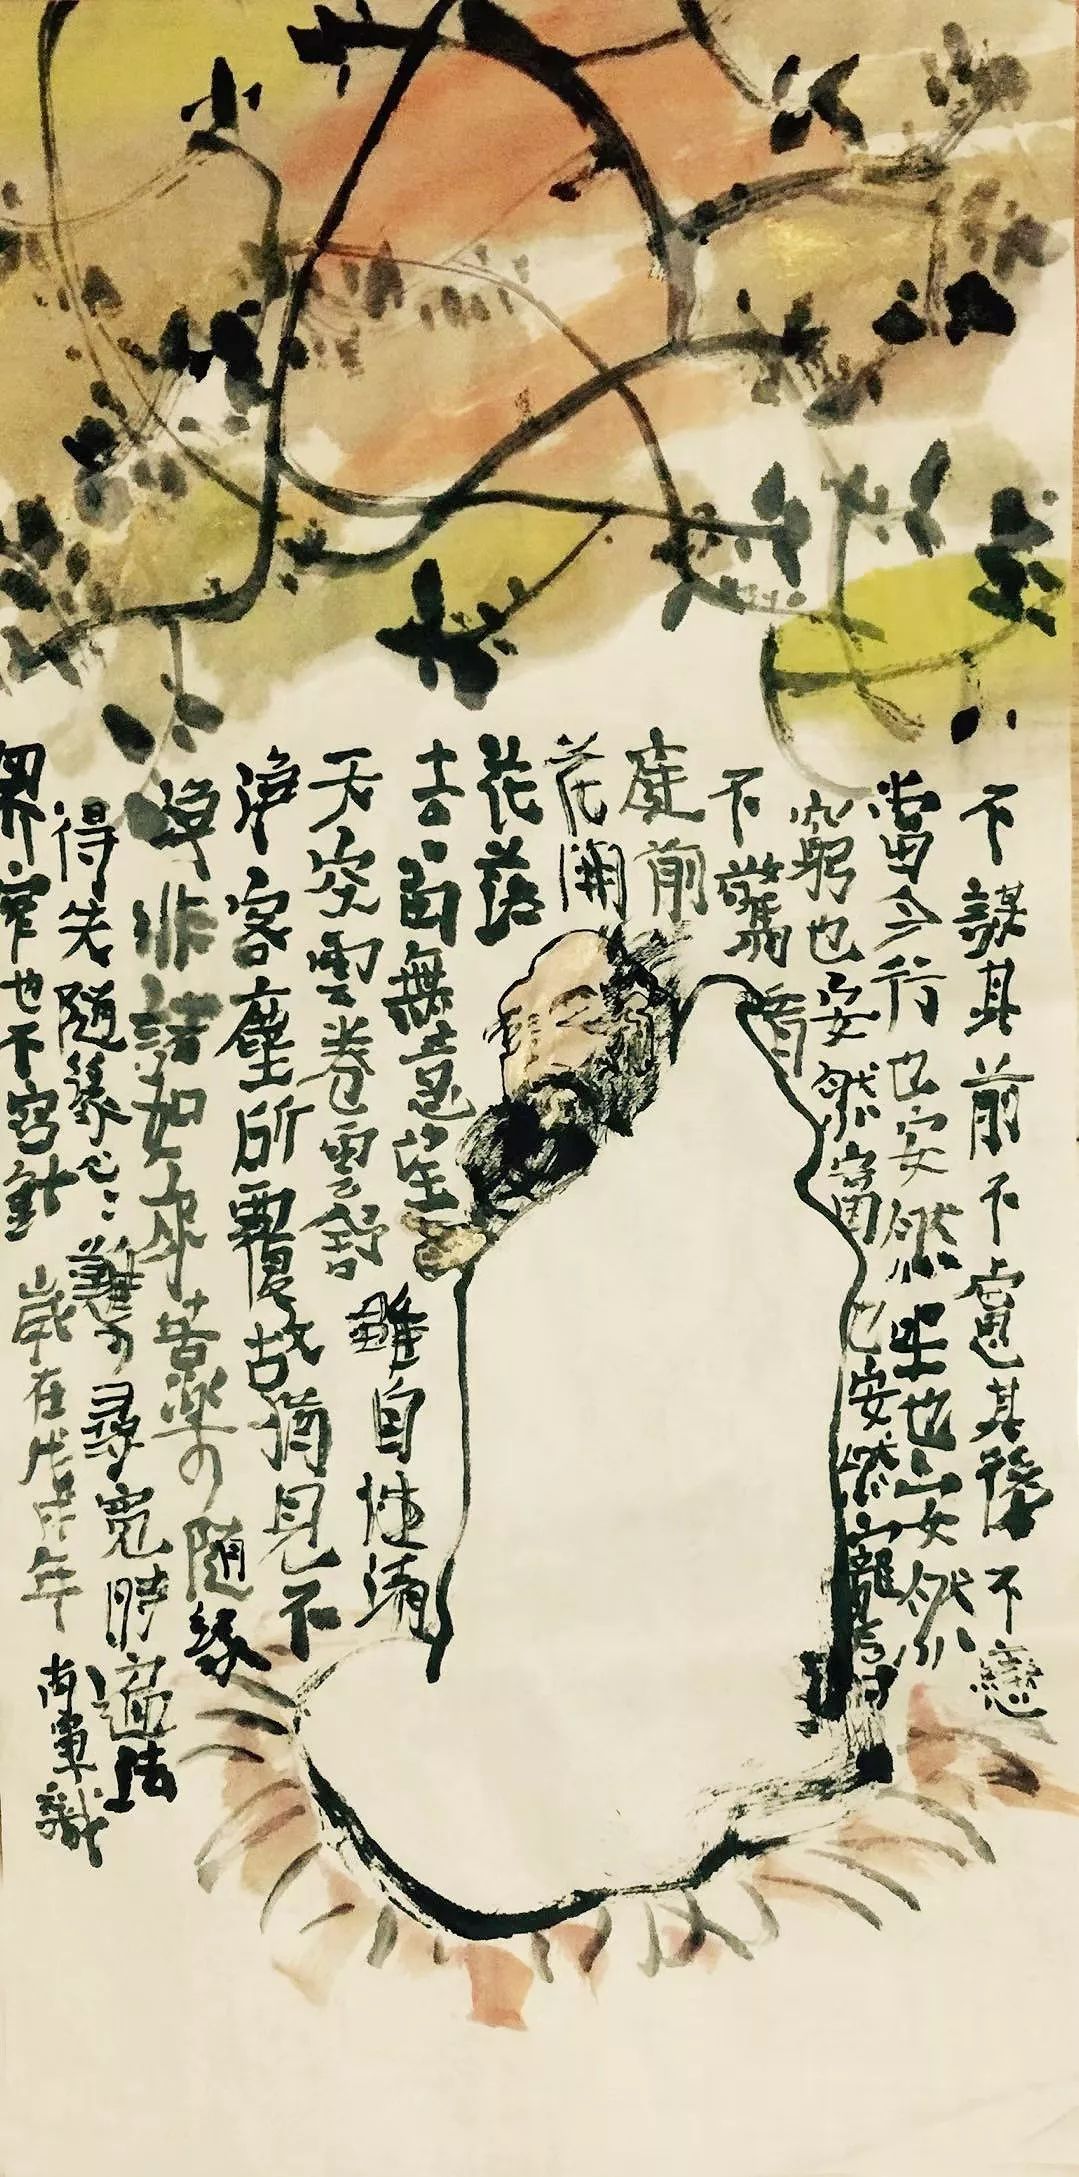 不謀其前不慮其後不戀
當今行也安然坐也安然
窮也安然富也安然寵辱
不驚看
庭前
花開
花落
去留無意望
天空雲卷雲舒雖自性清
淨客塵所覆故猶見不
淨非諸如來苦樂可隨緣
得失隨緣心心難可尋寬時遍法
界窄也不容針歲在戊戌年尚軍識